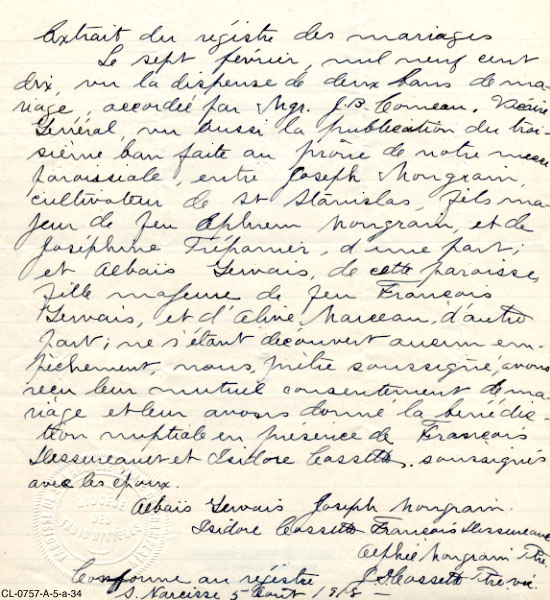 Extrait du régistre des mariages
Le sept février, mil neuf cent
dix, vu la dispense de deux bans de ma-
riage, accordée par Mgr. J. B. Comeau, Vicaire
Général, vu aussi la publication du troi-
sième ban faite au prône de notre messe
paroissiale, entre Joseph Mongrain,
cultivateur de St Stanislas, fils ma-
jeur de feu Ephrem Mongrain, et de
Joséphine Trépanier, d'une part;
et Albaïs Gervais, de cette paroisse,
fille majeure de feu François
Gervais, et d'Aline Marceau, d'autre
part; ne s'étant découvert aucun em-
pêchement, nous, prêtre soussigné, avons
reçu leur mutuel consentement de ma-
riage et leur avons donné la bénédic-
tion nuptiale en présence de François
Dessureault et Isidore Cossette, soussignés
avec les époux.
Albaïs Gervais Joseph Mongrain.
Isidore Cossette François Dessureault
Alphée Mongrain Ptre.
Conforme au régistre J. Cossette Ptre vic.
S. Narcisse 5 Août 1918 -
CL-0757-A-5-a-34